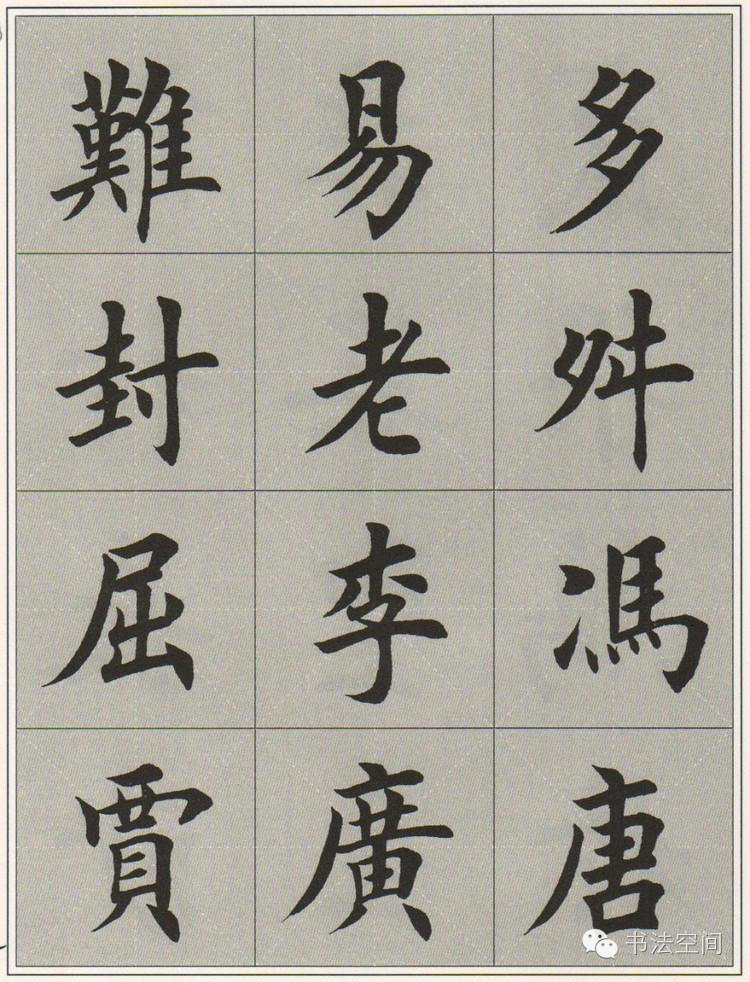 多舛馮唐
易老李廣
難封屈賈
书法空间